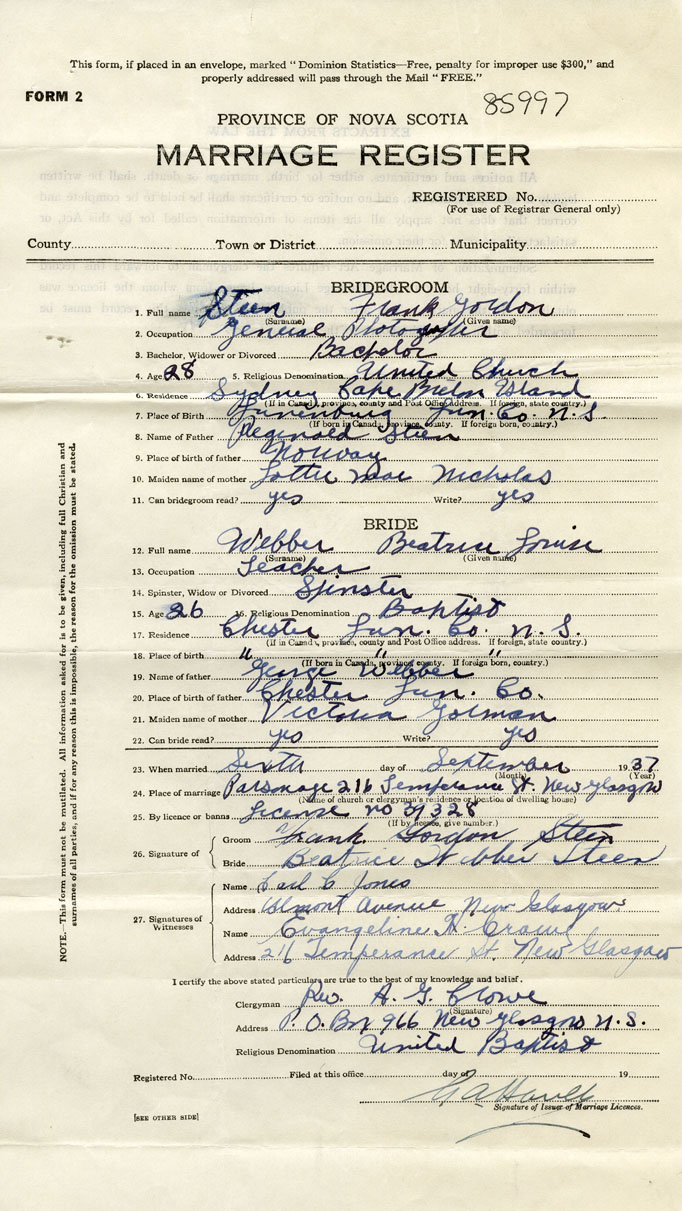 This form, if placed in an envelope, marked "Dominion Statistics—Free, penalty for improper use $300," and
properly addressed will pass through the Mail "FREE."
FORM 2
85997
PROVINCE OF NOVA SCOTIA
MARRIAGE REGISTER
REGISTERED No.
(For use of Registrar General only)
County Town or District Municipality
BRIDEGROOM
1. Full name Steen Frank Gordon
(Surname) (Given name)
2. Occupation General Photographer
3. Bachelor, Widower or Divorced Bachelor
4. Age 28 5. Religious Denomination United Church
6. Residence Sydney Cape Breton Island
(If in Canada, province, county and Post Office Address. If foreign, state country.)
7. Place of Birth Lunenburg Lun. Co. N.S
(If born in Canada, province, county. If foreign born, country.)
8. Name of Father Reginald Steen
9. Place of birth of father Norway
10. Maiden name of mother Lottie Mae Nicholas
11. Can bridegroom read? yes Write? yes
BRIDE
12. Full name Webber Beatrice Louise
(Surname) (Given name)
13. Occupation Teacher
14. Spinster, Widow or Divorced Spinster
15. Age 26 16. Religious Denomination Baptist
17. Residence Chester Lun. Co. N.S.
(If in Canada, province, county and Post Office address. If foreign, state country.)
18. Place of birth " " "
(If born in Canada, province, county. If foreign born, country.)
19. Name of father George Webber
20. Place of birth of father Chester Lun. Co.
21. Maiden name of mother Victoria Gorman
22. Can bride read? yes Write? yes
23. When married Sixth day of September 1937
(Month) (Year)
24. Place of marriage Parsonage 216 Temperance St. New Glasgow
(Name of church or clergyman's residence or location of dwelling house)
25. By licence or banns License no 01,328
(If by licence, give number.)
26. Signature of
Groom Frank Gordon Steen
Bride Beatrice Webber Steen
27. Signatures of Witnesses
Name Earl C Jones
Address Avenue New Glasgow
Name Evangeline H. Crowe
Address 216 Temperance St. New Glasgow
I certify the above stated particulars are true to the best of my knowledge and belief.
Clergyman Rev. A. G. Crowe
(Signature)
Address P.O. Box 966 New Glasgow N.S.
Religious Denomination United Baptist
Registered No. Filed at this office day of 19
Signature of Issuer of Marriage Licences.
[SEE OTHER SIDE]
NOTE.—This form must not be mutilated. All information asked for is to be given, including full Christian and
surnames of all parties, and if for any reason this is impossible, the reason for the omission must be stated.